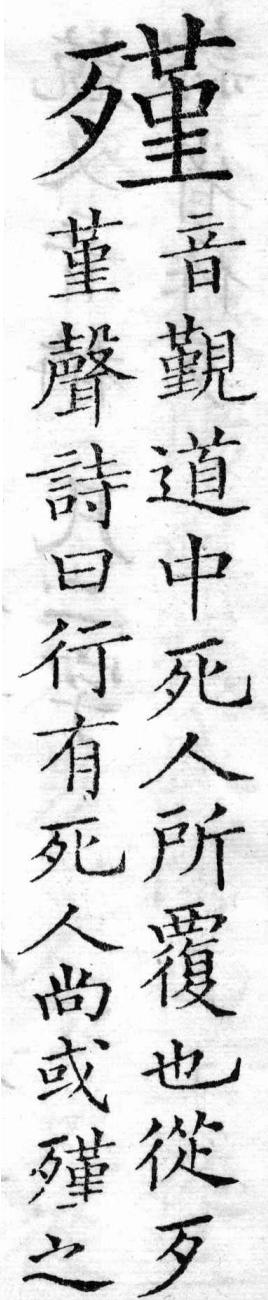 殣
音覲道中死人所覆也從歹
堇聲詩曰行有死人尚或殣之